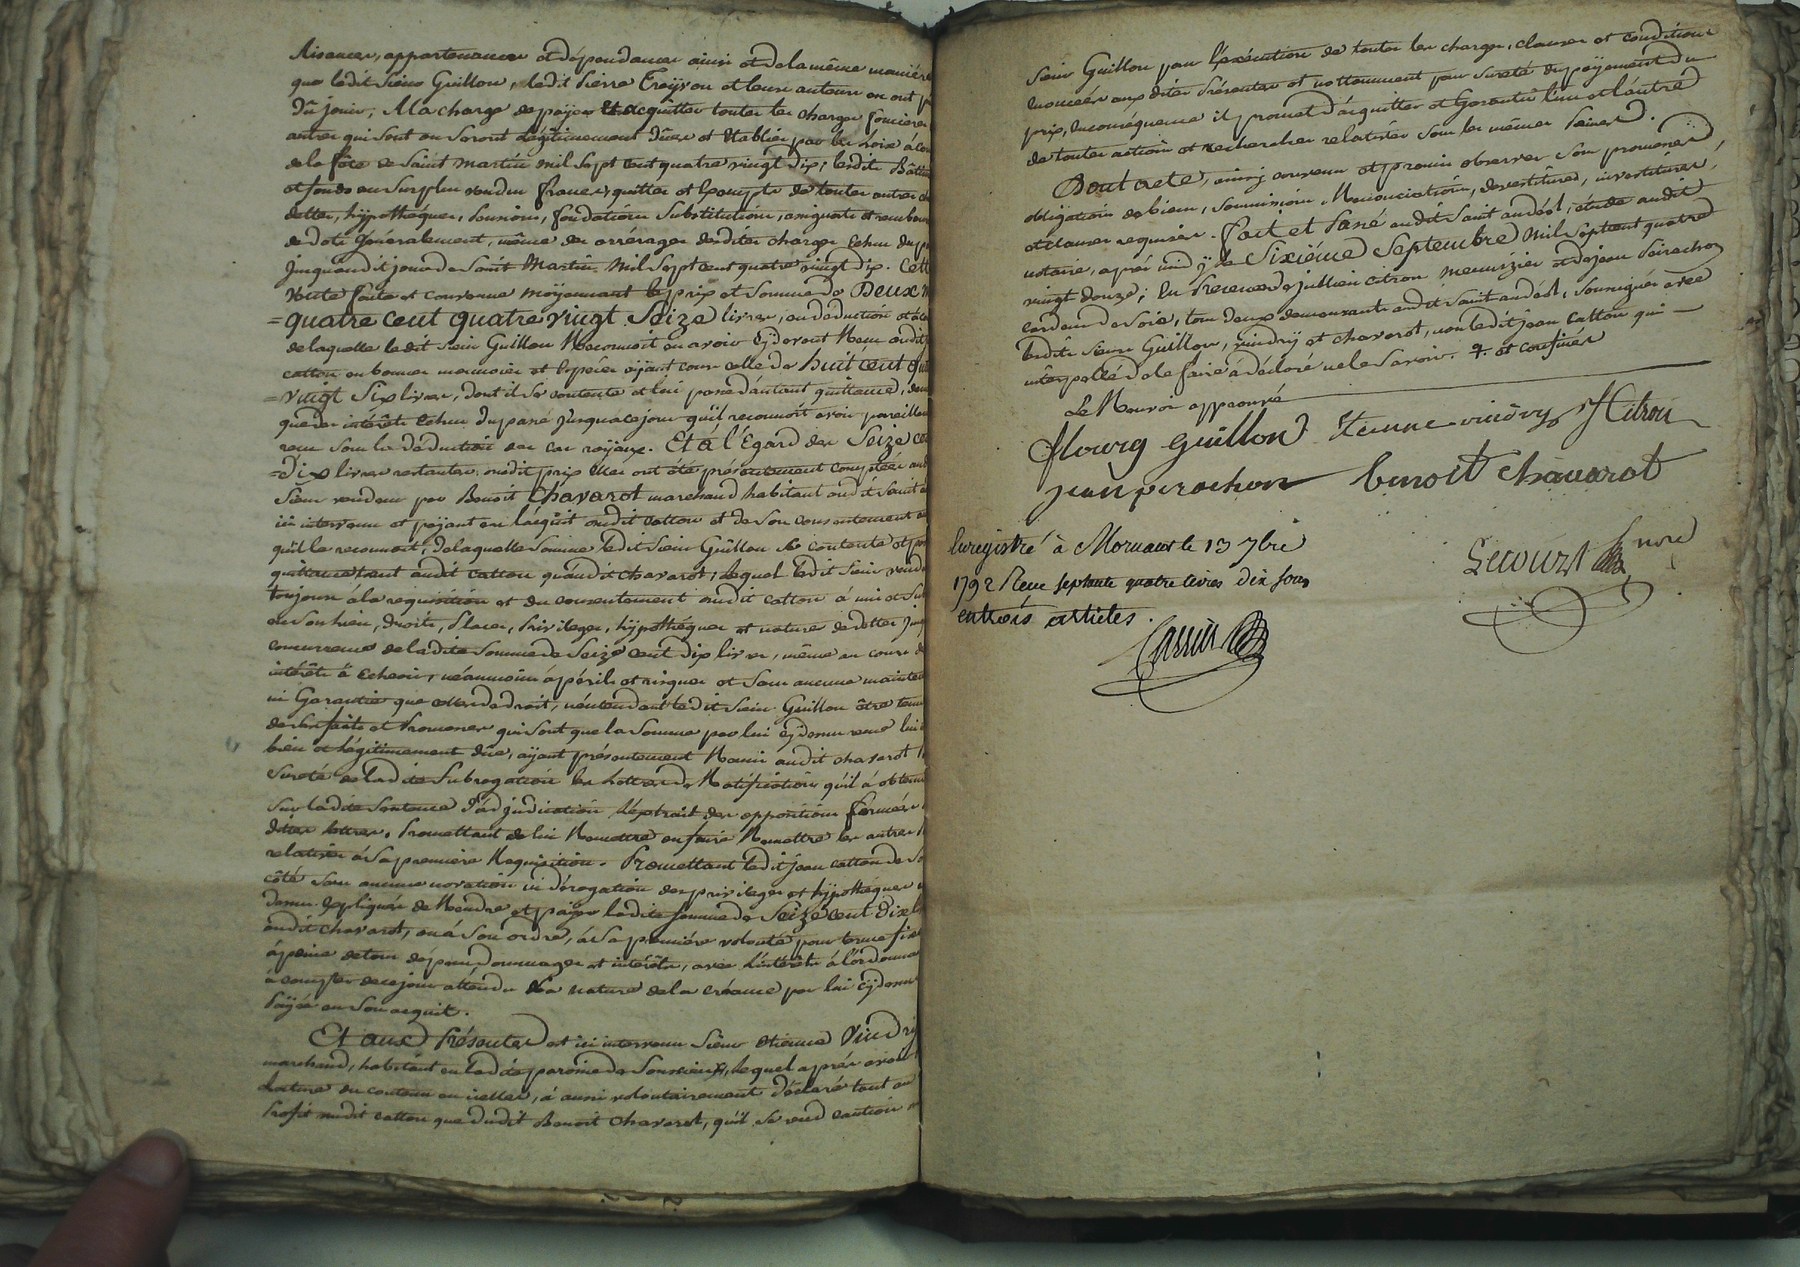 aisances, appartenances et dépendances ainsi et de la même manière
que ledit Sieur Guillon, ledit Pierre Treyvou et leurs auteurs en ont
dû jouir, A la charge de payer et acquitter toutes les charges foncières
autres qui sont ou seront légitimement dûes et établies par les loix à
de la fête de Saint Martin mil sept cent quatre vingt dix; lesdits Bâtim
et fonds au surplus vendus francs, quittes et exempts de toutes autres
dettes, hypothéques, pensions, fondations, Substitutions, assignats et rembour
de dots généralement, même des arrérages desdites charges échus du p
jusqu'audit jour de Saint Martin mil sept cent quatre vingt dix. Cett
Vente faite et convenue moÿennant le prix et Somme de Deux m
=quatre cent quatre vingt Seize livres, en déduction et à c
de laquelle ledit Sieur Guillon Reconnoit en avoir cÿ devant Reçu dudit
catton en bonnes monnoies et Espéces aÿant cours celle de huit cent qu
=vingt Six livres, dont il se contente et lui passe d'autant quittance,
que des intérêts Echus du passé jusqu'à ce jour qu'il reconnoit avoir pareillem
reçu sous la déduction des cas royaux. Et à l'Egard des Seize ce
=Dix livres restantes dudit prix Elles ont été présentement comptées aud
Sieur vendeur par Benoit Chavarot marchand habitant audit Saint a
ici intervenu et paÿant en l'acquit dudit catton et de son consentement
qu'il le reconnoit, de laquelle Somme ledit Sieur Guillon se contente et
quittance tant audit catton qu'audit chavarot, lequel ledit Sieur vend
toujours à la requisition et du consentement dudit catton à mis et Sub
en Son lieu, droits, Places, Privileges, hÿpothéques et nature de dettes jusq
concurrence de ladite Somme de Seize cent dix livres, même au cours d
intérêts à Echeoir, néanmoins à périls et risques et Sans aucune mainten
ni Garantie que celles de droit, n'entendant ledit Sieur Guillon être tenu
de Ses faits et Promesses qui sont que la Somme par lui cÿdessus reçue lui
bien et légitimement dûe, aÿant présentement Remis audit chavarot
Sureté de ladite Subrogation les Lettres de Ratification qu'il à obtenu
Sur ladite Sentence d'adjudication l'extrait des oppositions formées
dites lettres. Promettant de lui Remettre ou faire Remettre les autres
relatives à Sa premiere Requisition. Promettant ledit jean catton de So
côté Sans aucune novation ni dérogation des privileges et hÿpothéques
dessus expliqués de Rendre et paÿer ladite Somme de Seize cent Dix l
audit chavarot, ou à Son ordre, à Sa premiére volonté pour terme fixe
à peine de tous dépens dommages et intérêts, avec l'intérêt à l'ordonna
à compter de ce jour attendu la nature de la créance par lui cÿdessus
Paÿée en Son acquit.
Et aux Présentes est ici intervenu Sieur Etienne Vindry
marchand, habitant en ladite paroisse de Soucieux, lequel aprés avoir
lecture du contenu en icelles, à aussi volontairement déclaré tant au
Profit dudit catton que dudit Benoit Chavarot, qu'il Se rend caution
Sieur Guillon pour l'exécution de toutes les charges, clauses et conditions
énoncées aux dites Présentes et nottamment pour Sureté du paÿement du
prix, en conséquence il promet d'acquitter et Garantir l'un et l'autre
de toutes actions et recherches relatives sous les mêmes Peines.
Dont acte, ainsy convenu et promis observer Sous promesses
obligations de biens, Soumissions, Renonciations, devestitures, investitures,
et clauses requises. fait et Passé audit Saint andéol, étude dudit
notaire, aprés midÿ le Sixiéme Septembre mil Sept cent quatre
vingt douze; En Présence de jullien citron menuizier et de jean Pirachon
cardeur de Soie, tous deux demeurants audit Saint andéol, Soussignés avec
lesdits Sieurs Guillon, vindrÿ et chavarot, non ledit jean Catton qui —
interpellé de le faire à déclaré ne le Savoir. et confinés
Le Renvoi approuvé
flourg guillon Etienne vindry J Citron
jean pirachon benoit chavarot
Enregistré à Mornant le 13 7bre
1792 Reçu septante quatre livres dix sous
en trois articles.
Lecourt nore